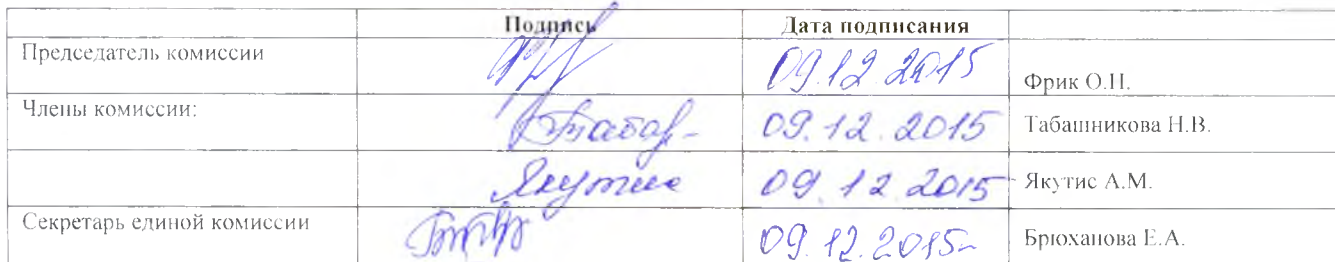 Подпись Дата подписания
Председатель комиссии 09.12 2015 Фрик О.П.
Члены комиссии: 09.12.2015 Табашникова Н.В.
Якутис 09.12.2015 Якутис А.М.
Секретарь единой комиссии 09.12.2015 Брюханова Е.А.